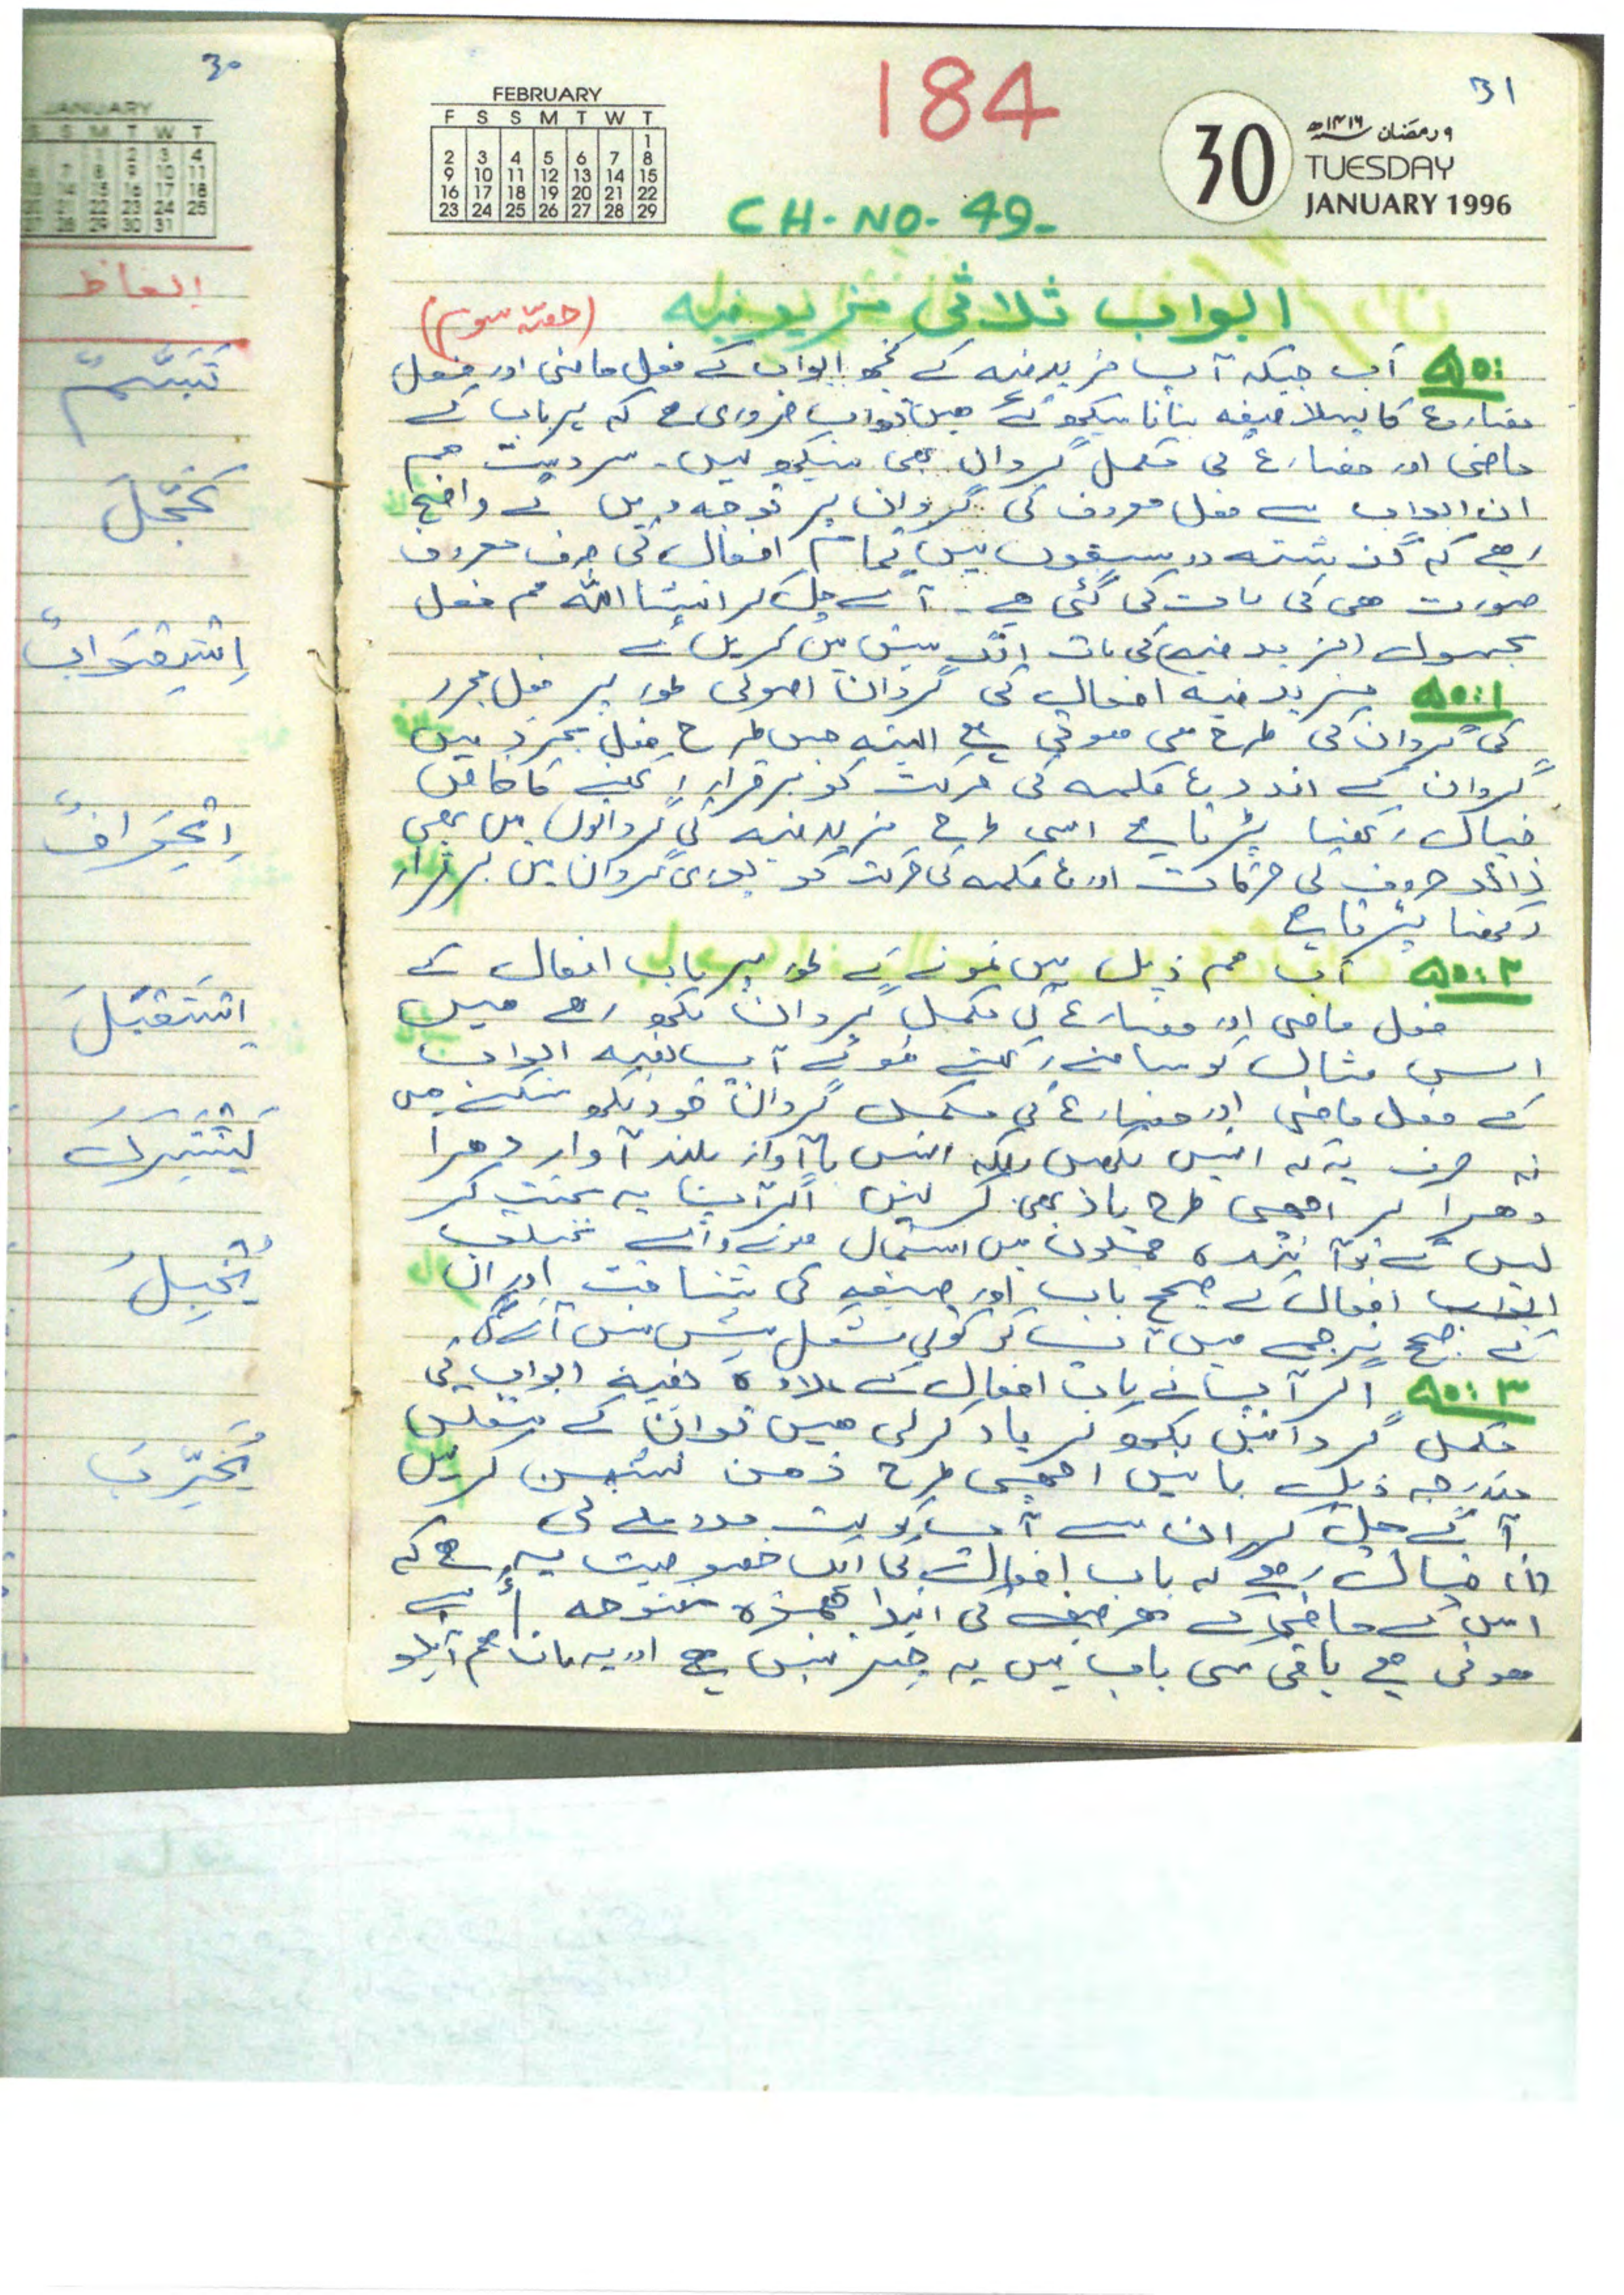 30
JANUARY
S S M T W T
الفاظ
تَبَسُّمٌ
تَحَجَّلَ
اِنْحِرَافٌ
اِسْتَقْبَلَ
يَشْتَرِكُ
31
184
FEBRUARY
F S S M T W T
1
2 3 4 5 6 7 8
9 10 11 12 13 14 15
16 17 18 19 20 21 22
23 24 25 26 27 28 29
30
۹ رمضان ۱۴۱۶ھ
TUESDAY
JANUARY 1996
CH-NO-49-
ابواب ثلاثی مزید فیہ (حصّہ سوم)
۵۰: اب جبکہ آپ مزید فیہ کے کچھ ابواب کے فعل ماضی اور فعل
مضارع کا پہلا صیغہ بنانا سیکھ گئے ہیں تو اب ضروری ہے کہ ہر باب کے
ماضی اور مضارع کی مکمل گردان بھی سیکھ لیں۔ سردست ہم
ان ابواب سے فعل معروف کی گردان پر توجہ دیں گے واضح
رہے کہ گذشتہ دو سبقوں میں تمام افعال کی صرف معروف
صورت ہی کی بات کی گئی ہے۔ آگے چل کر انشا اللہ ہم فعل
مجہول (مزید فیہ) کی بات الگ سبق میں کریں گے
۵۰:۱ مزید فیہ افعال کی گردان اصولی طور پر فعل مجرد
کی گردان کی طرح ہی ہوتی ہے البتہ جس طرح فعل مجرد میں
گردان کے اندر ع کلمہ کی حرکت کو برقرار رکھنے کا خاص
خیال رکھنا پڑتا ہے اسی طرح مزید فیہ کی گردانوں میں بھی
زائد حروف کی حرکات اور ع کلمہ کی حرکت کو پوری گردان میں برقرار
رکھنا پڑتا ہے
۵۰:۲ اب ہم ذیل میں نمونے کے طور پر باب افعال کے
فعل ماضی اور مضارع کی مکمل گردان لکھ رہے ہیں
اس مثال کو سامنے رکھتے ہوئے آپ بقیہ ابواب
کے فعل ماضی اور مضارع کی مکمل گردان خود لکھ سکتے ہیں
نہ صرف یہ کہ انہیں لکھیں بلکہ انہیں باآواز بلند آواز دھرا
دھرا کر اچھی طرح یاد بھی کر لیں اگر آپ یہ محنت کر
لیں گے تو آئندہ جملوں میں استعمال ہونے والے مختلف
ابواب افعال کے صحیح باب اور صیغہ کی شناخت اور ان
کے صحیح ترجمے میں آپ کو کوئی مشکل پیش نہیں آئے گی
۵۰:۳ اگر آپ نے باب افعال کے علاوہ بقیہ ابواب کی
مکمل گردانیں لکھ کر یاد کر لی ہیں تو ان کے متعلق
مندرجہ ذیل باتیں اچھی طرح ذہن نشین کر لیں
آگے چل کر ان سے آپ کو بہت مدد ملے گی
(i) خیال رہے کہ باب افعال کی ایک خصوصیت یہ ہے کہ
اس کے ماضی کے ہر صیغے کی ابتدا ہمزہ مفتوحہ أَ سے
ہوتی ہے باقی کسی باب میں یہ چیز نہیں ہے اور یہ بات ہم آپکو